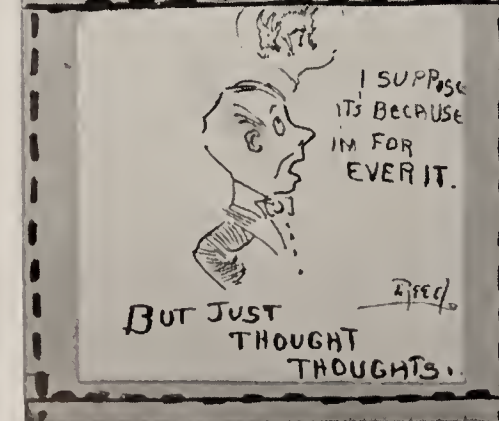 I SUPPOSE
ITS BECAUSE
IM FOR
EVER IT.
BUT JUST
THOUGHT
THOUGHTS.